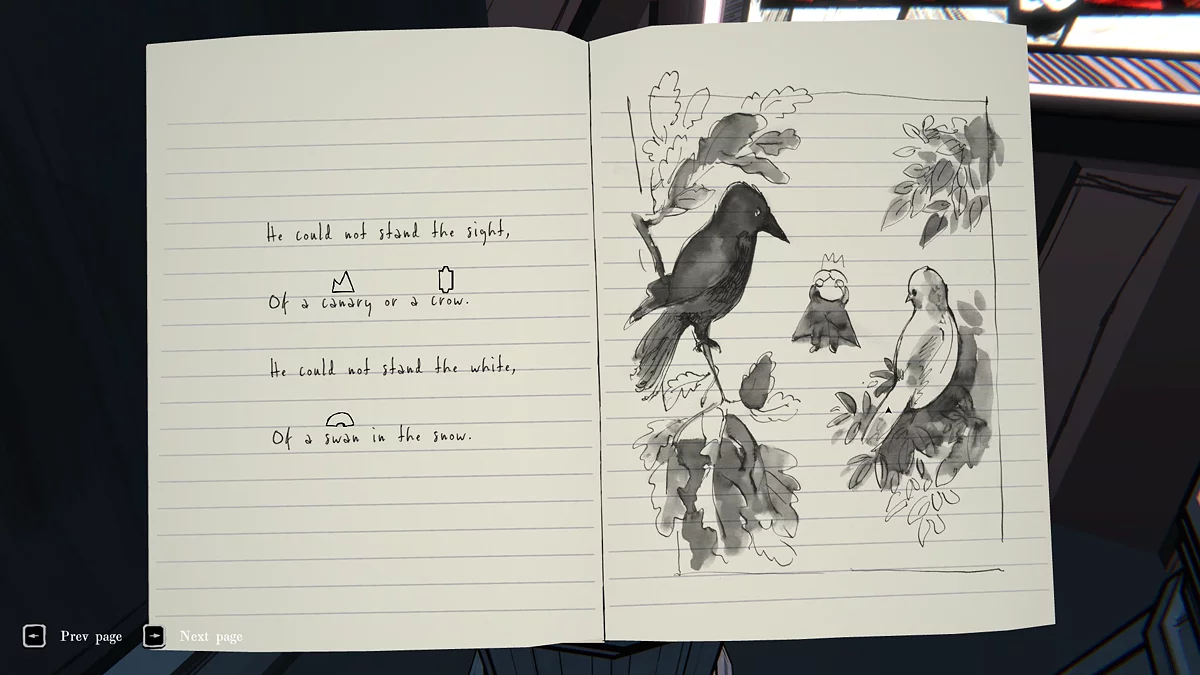 He could not stand the sight,
Of a canary or a crow.
He could not stand the white,
Of a swan in the snow.
Prev page
Next page